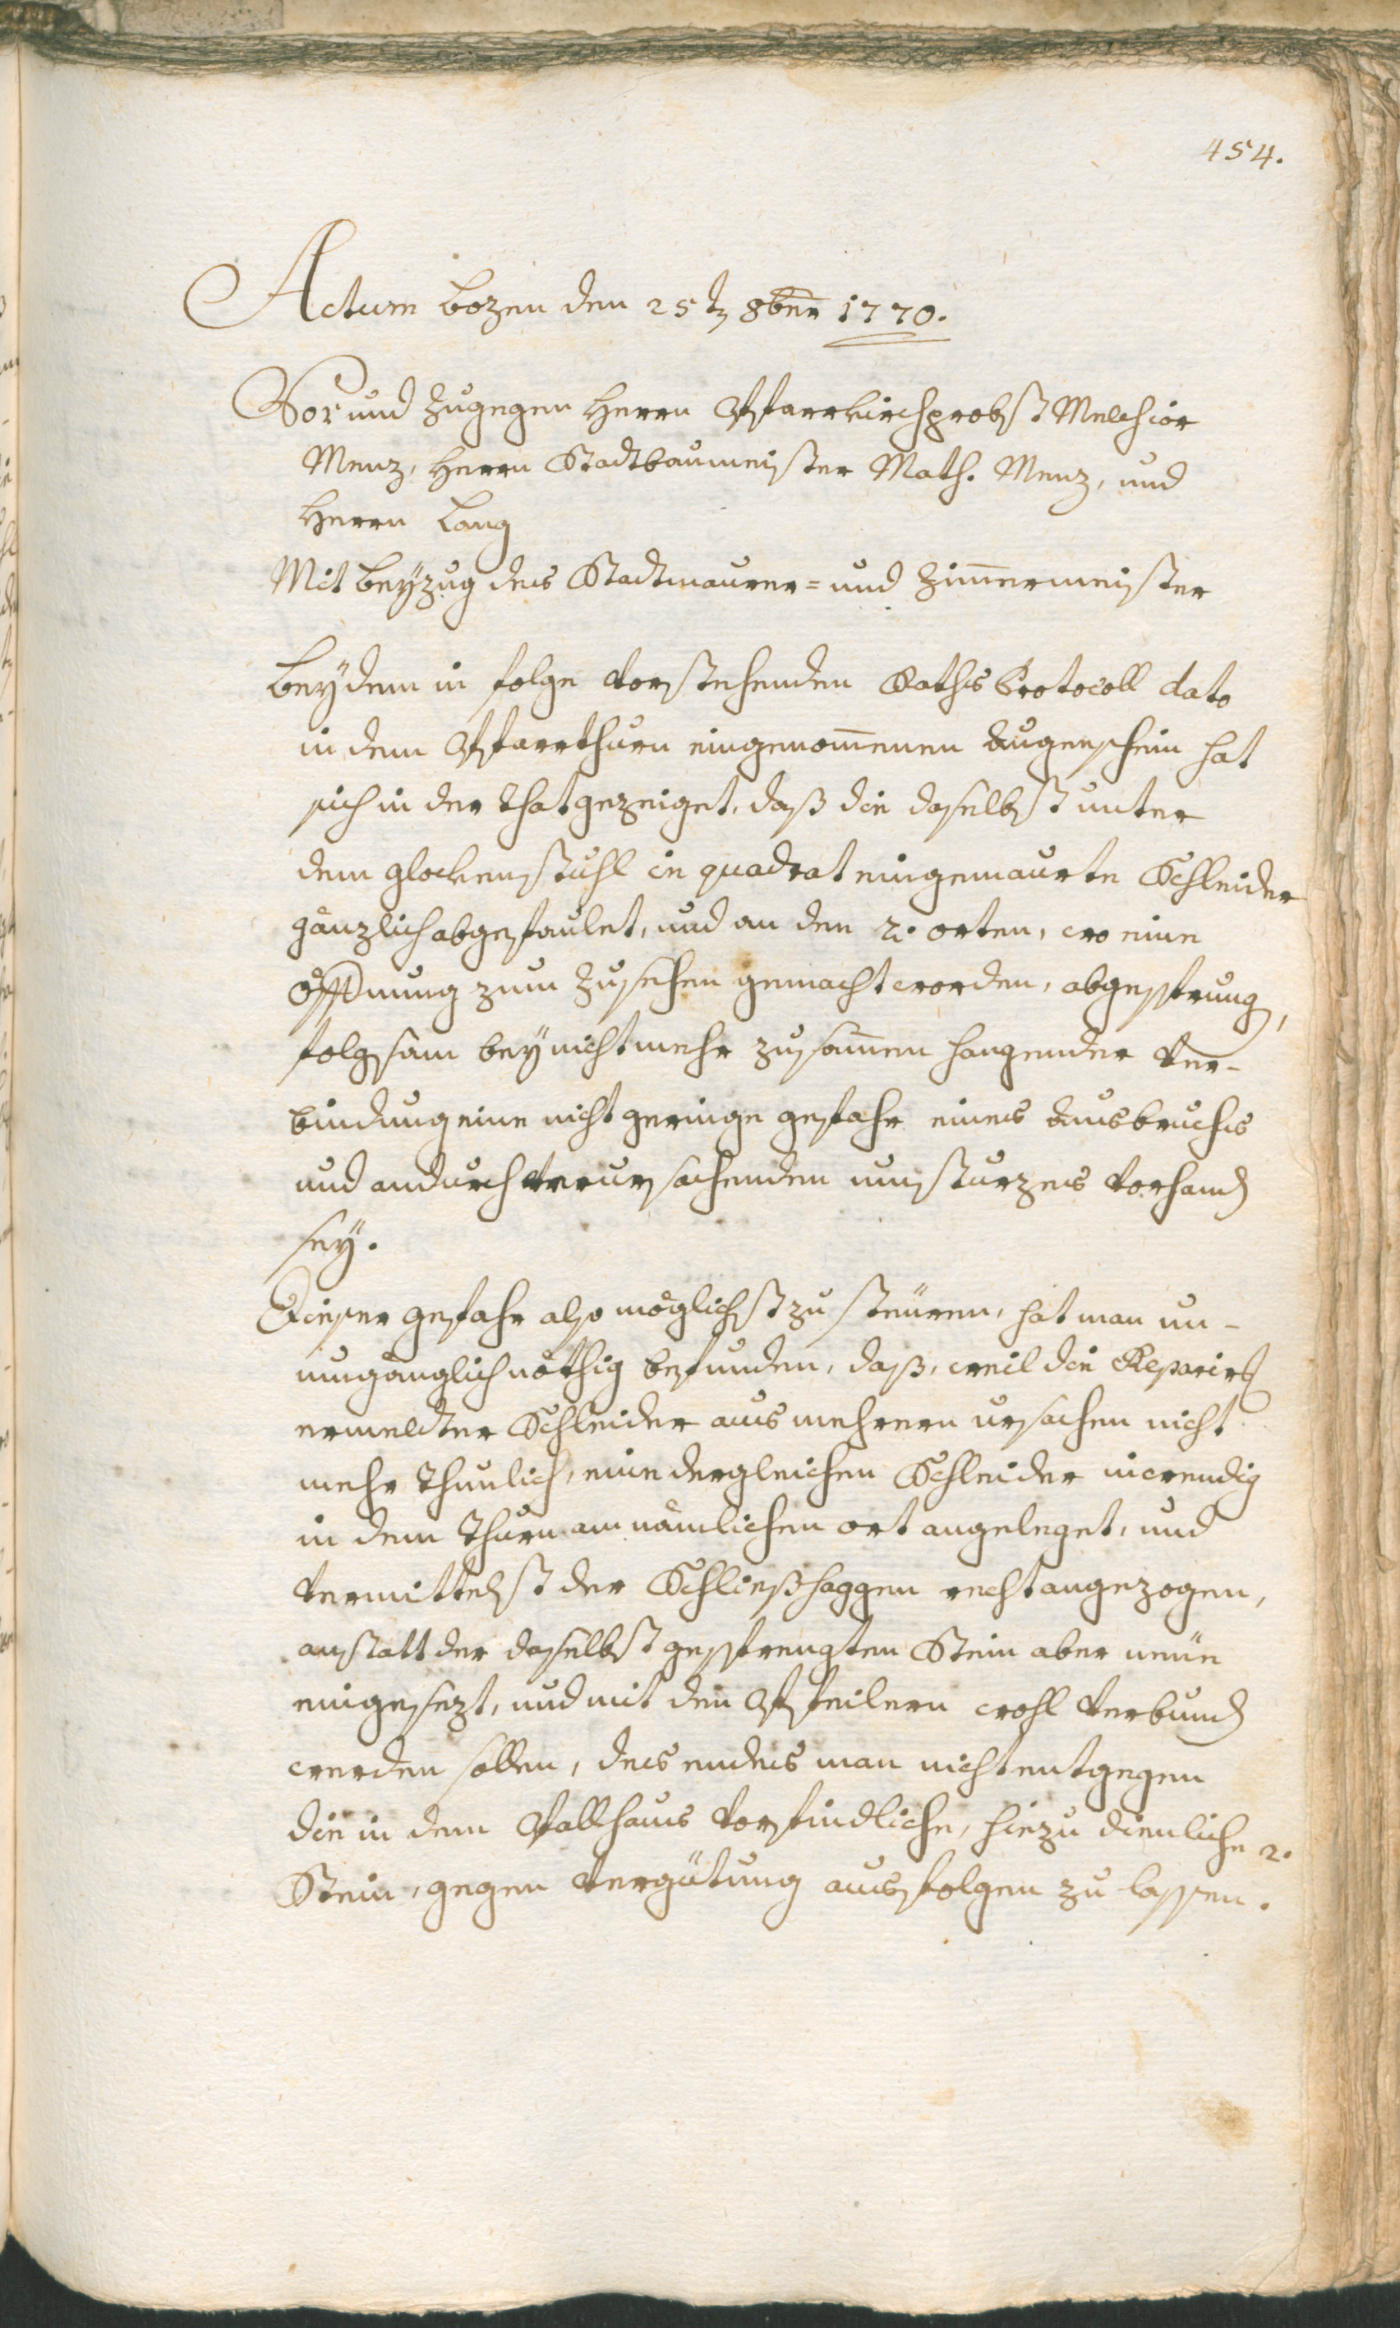 454.
Actum Bozen den 25tn 8ber 1770.
Vor und Zugegen Herrn Pfarrkirchprobst Melchior
Menz, Herrn Stadtbaumeister Math. Menz, und
Herrn Lang
Mit beÿzug des Stadtmaurer= und Zimermeister
Beÿ dem in folge Vorstehenden Raths Protocoll dato
in dem Pfarrthurn eingenomenen Augenschein hat
sich in der That gezeiget, daß die daselbst unter
dem glockenstuhl in quadrat eingemaurte Schleider
gänzlich abgefaulet, und an den 2. orten, wo eine
öffnung zum Zusehen gemacht worden, abgesprung,
folgsam beÿ nicht mehr zusamen hangender Ver-
bindung eine nicht geringe gefahr eines Ausbruchs
und andurch Verursachenden umsturzes Vorhand
seÿ.
Dieser gefahr also möglichst zu steüren, hat man un-
umgänglich nöthig befunden, daß, weil die Reparirg
ermelter Schleider aus mehrern ursachen nicht
mehr thunlich, eine dergleichen Schleider inwendig
in dem Thurn am nämlichen ort angeleget, und
Vermittelst der Schließhaggen recht angezogen,
anstatt der daselbst gesprengten Stein aber neüe
eingesezt, und mit den Pfeilern wohl Verbund
werden sollen, des endes man nicht entgegen
die in dem Pallhaus Vorfindliche, hiezu dienliche 2.
Stein, gegen Vergütung ausfolgen zu lassen.